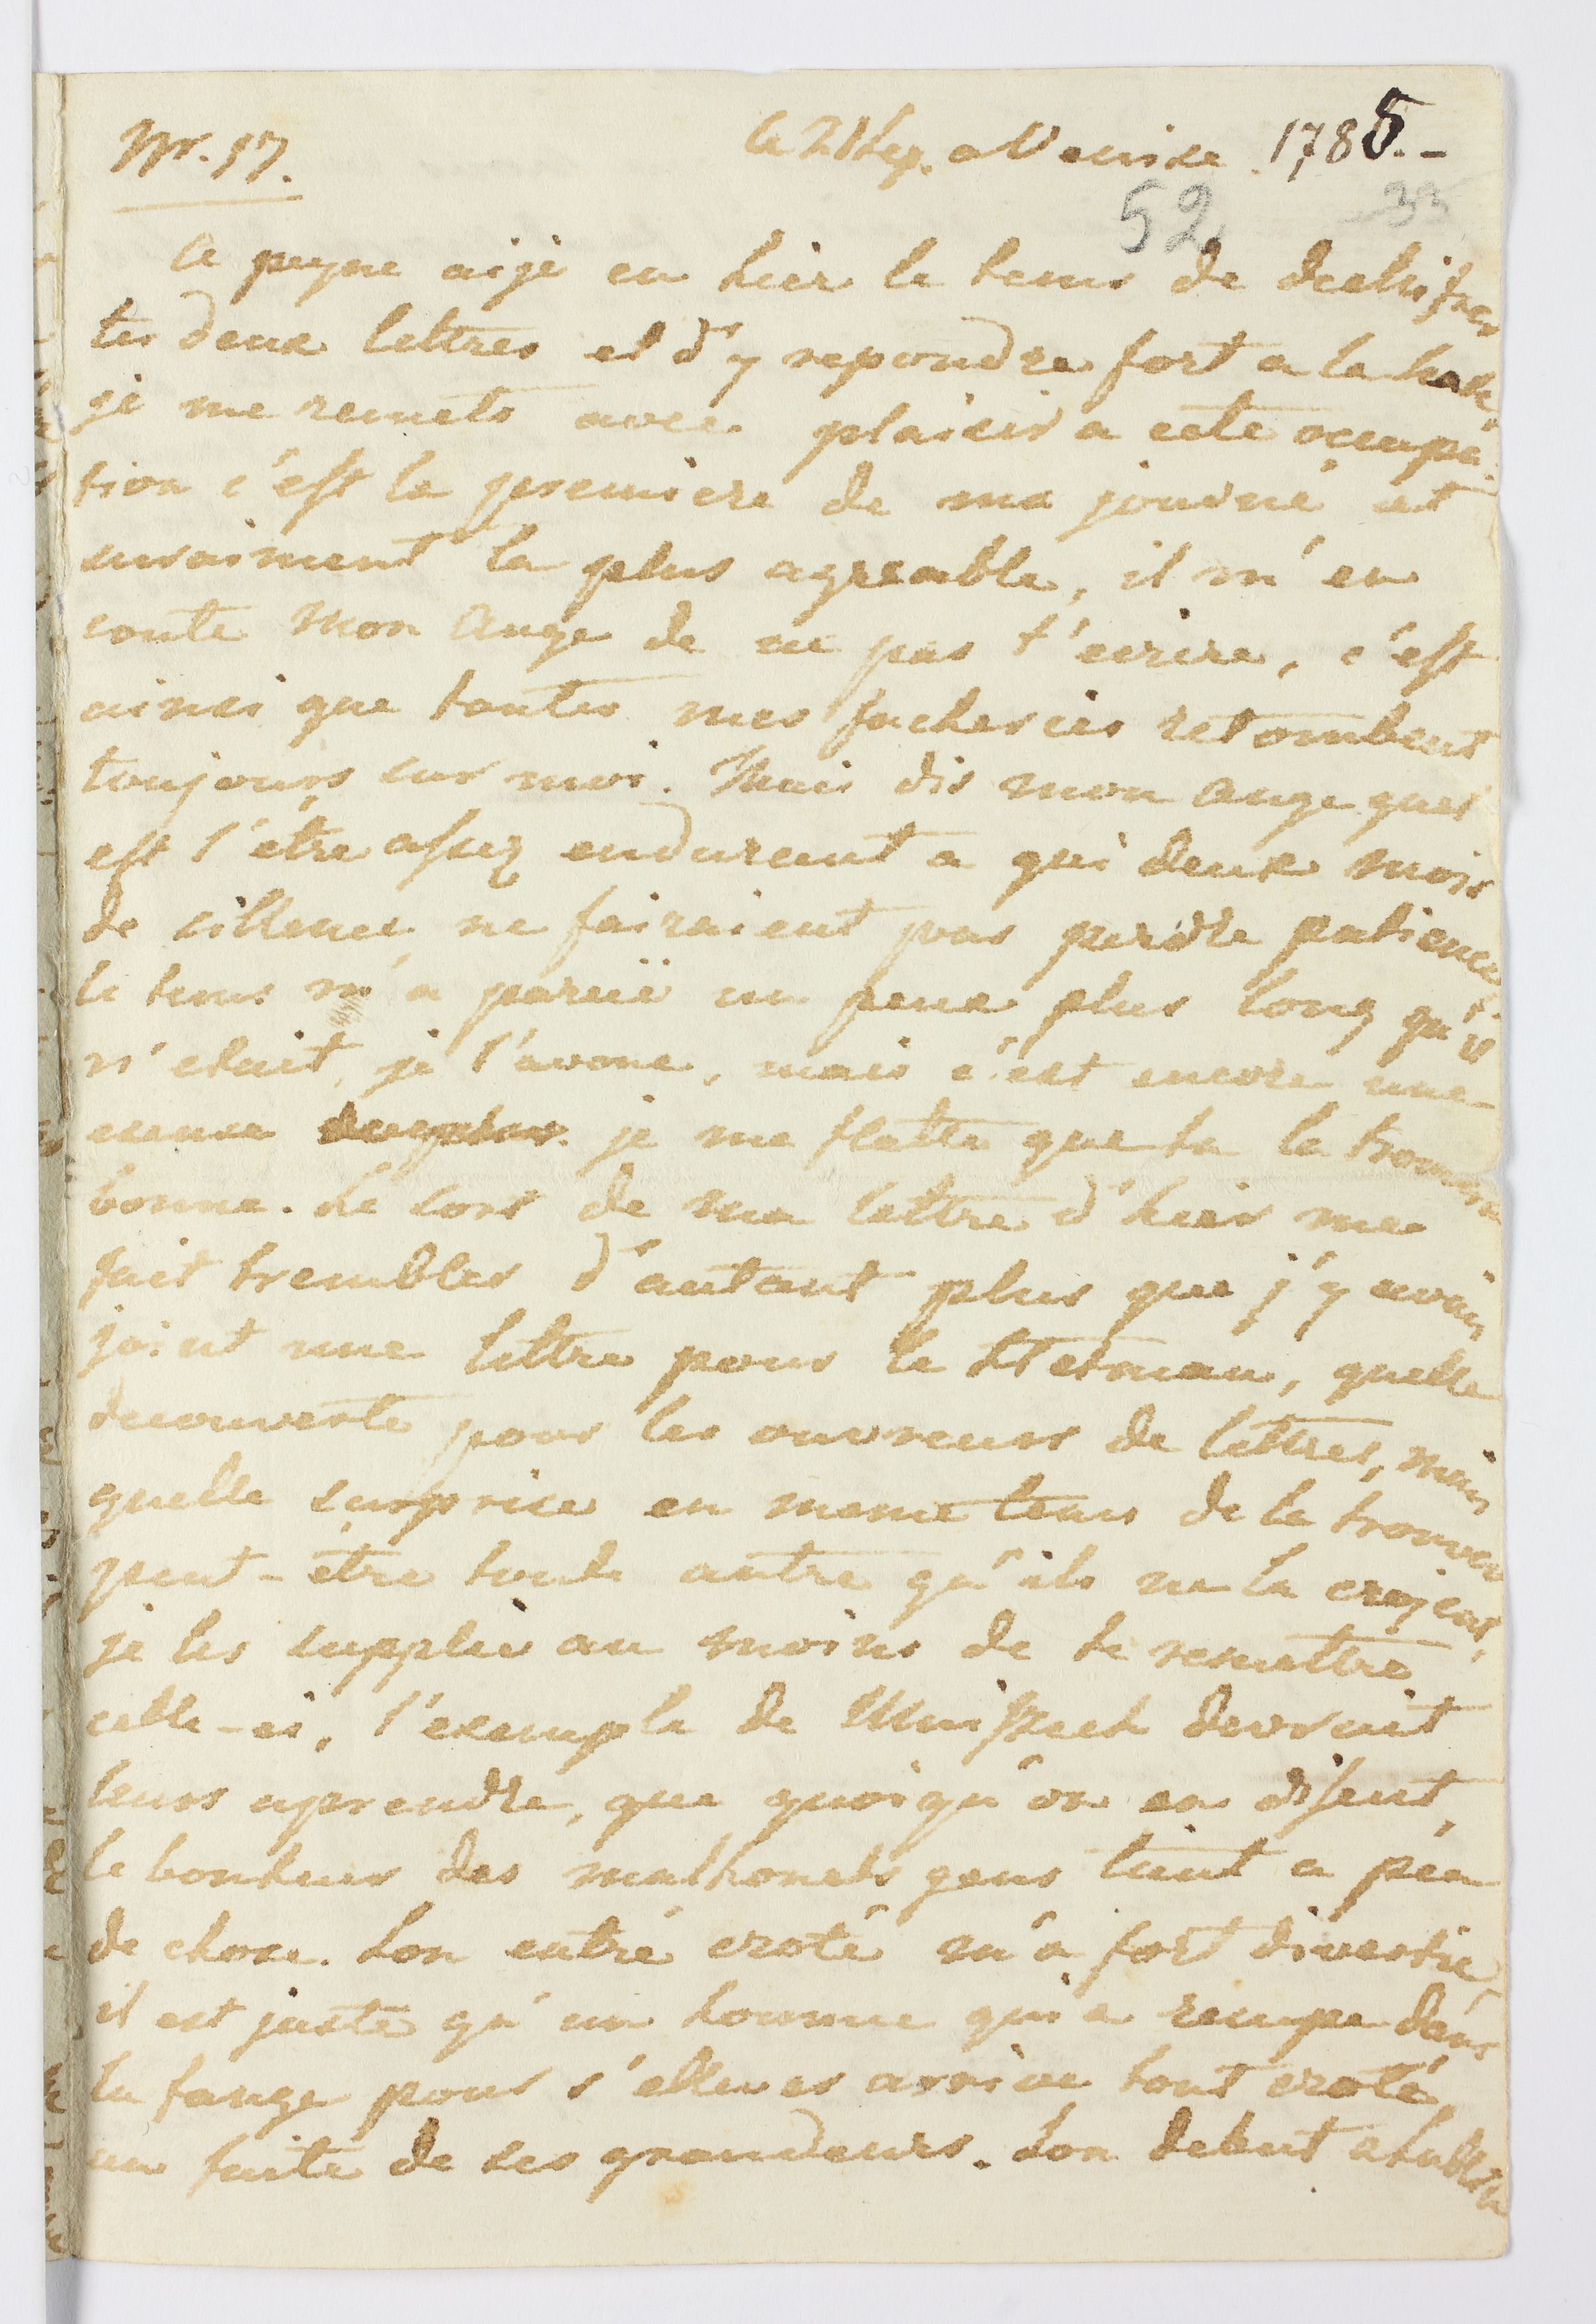 Nr. 17.
le 2 Sep. a Venise. 1785.-
52
33
A peyne aije eu hier le tems de dechifrer
tes deux lettres et d'y repondre fort a la hate
je me remets avec plaisir a cete occupa
tion c'est la premiere de ma journé et
suraiment la plus agreable, il m'en
coute Mon Ange de ne pas t'ecrire, c'est
ainsi que toutes mes facheries retombent
toujours sur moi. Mais dis mon Ange quel
est l'être assez endurent a qui deux mois
de cillence ne fairaient pas perdre patience
le tems m'a parüe un peux plus long qu'il
n'etait, je l'avoue, mais c'est encore une
excuse je me flatte que tu la trouveras
bonne. Le sors de ma lettre d'hier me
fait trembler d'autant plus que j'y avois
joint une lettre pour le Hetman, quelle
decouverte pour les ouvreurs de lettres, mais
quelle surprise en meme tems de la trouver
peut-être toute autre qu'ils ne la crojent,
je les supplie au moins de te remettre
celle-ci, l'exemple de Mniszech devrait
leurs aprendre, que quoiqu'on en disent,
le bonheur des malhonets gens tient a peu
de chose. Son entré croté m'a fort divertie
il est juste qu'un homme qui a rempe dans
la fange pour s'ellever arrive tout croté
au faite de ses grandeurs. Son debut a Lublin